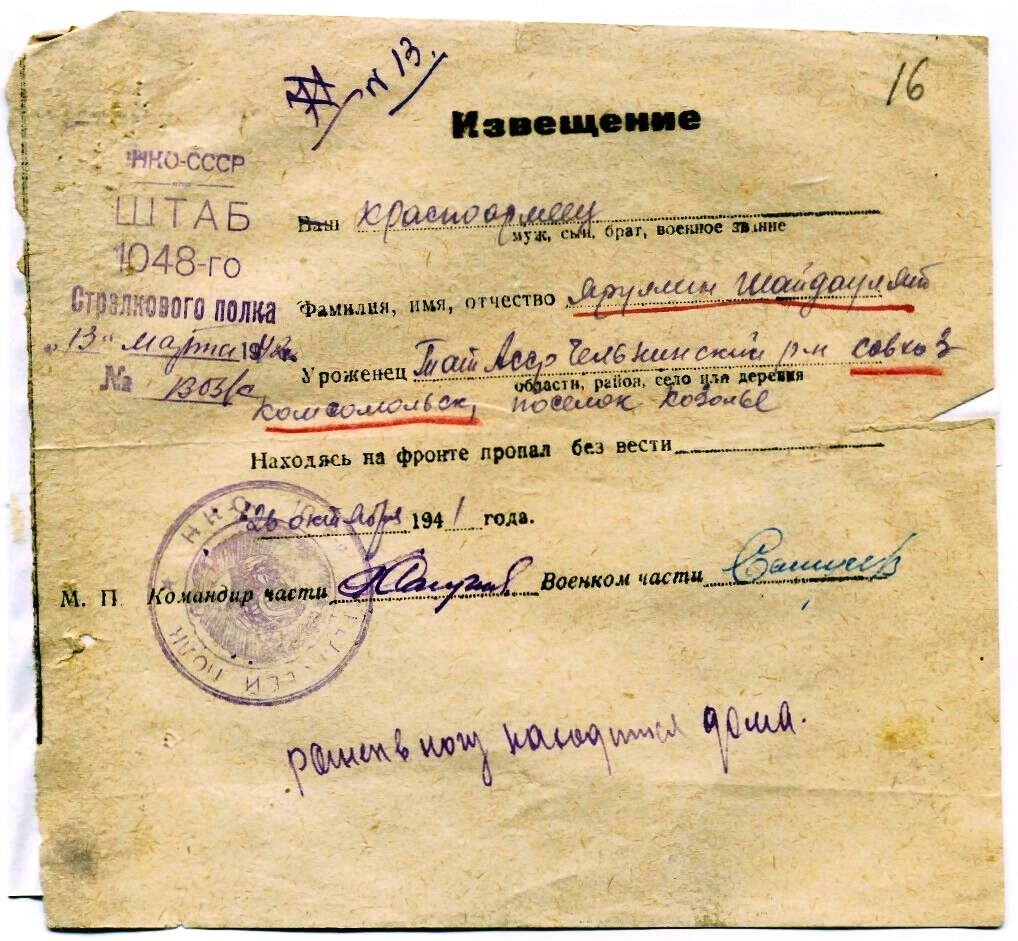 N 13.
16
Извещение
НКО-СССР
ШТАБ
1048-го
Стрелкового полка
"13" марта 1942г.
№
Ваш красноармеец
муж, сын, брат, военное звание
Фамилия, имя, отчество Яруллин Шайдаулят
Уроженец Тат Асср Челнинский р-н совхоз
области, район, село или деревня
Комсомольск, поселок
Находясь на фронте пропал без вести
26 октября 1941 года.
М. П. Командир части Военком части
НКО
ПОЛК
ранен в ногу находится дома.